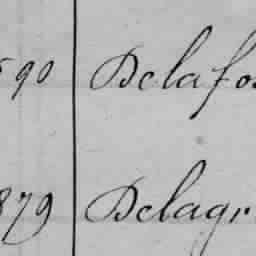 590 Delafo
879 Delagr